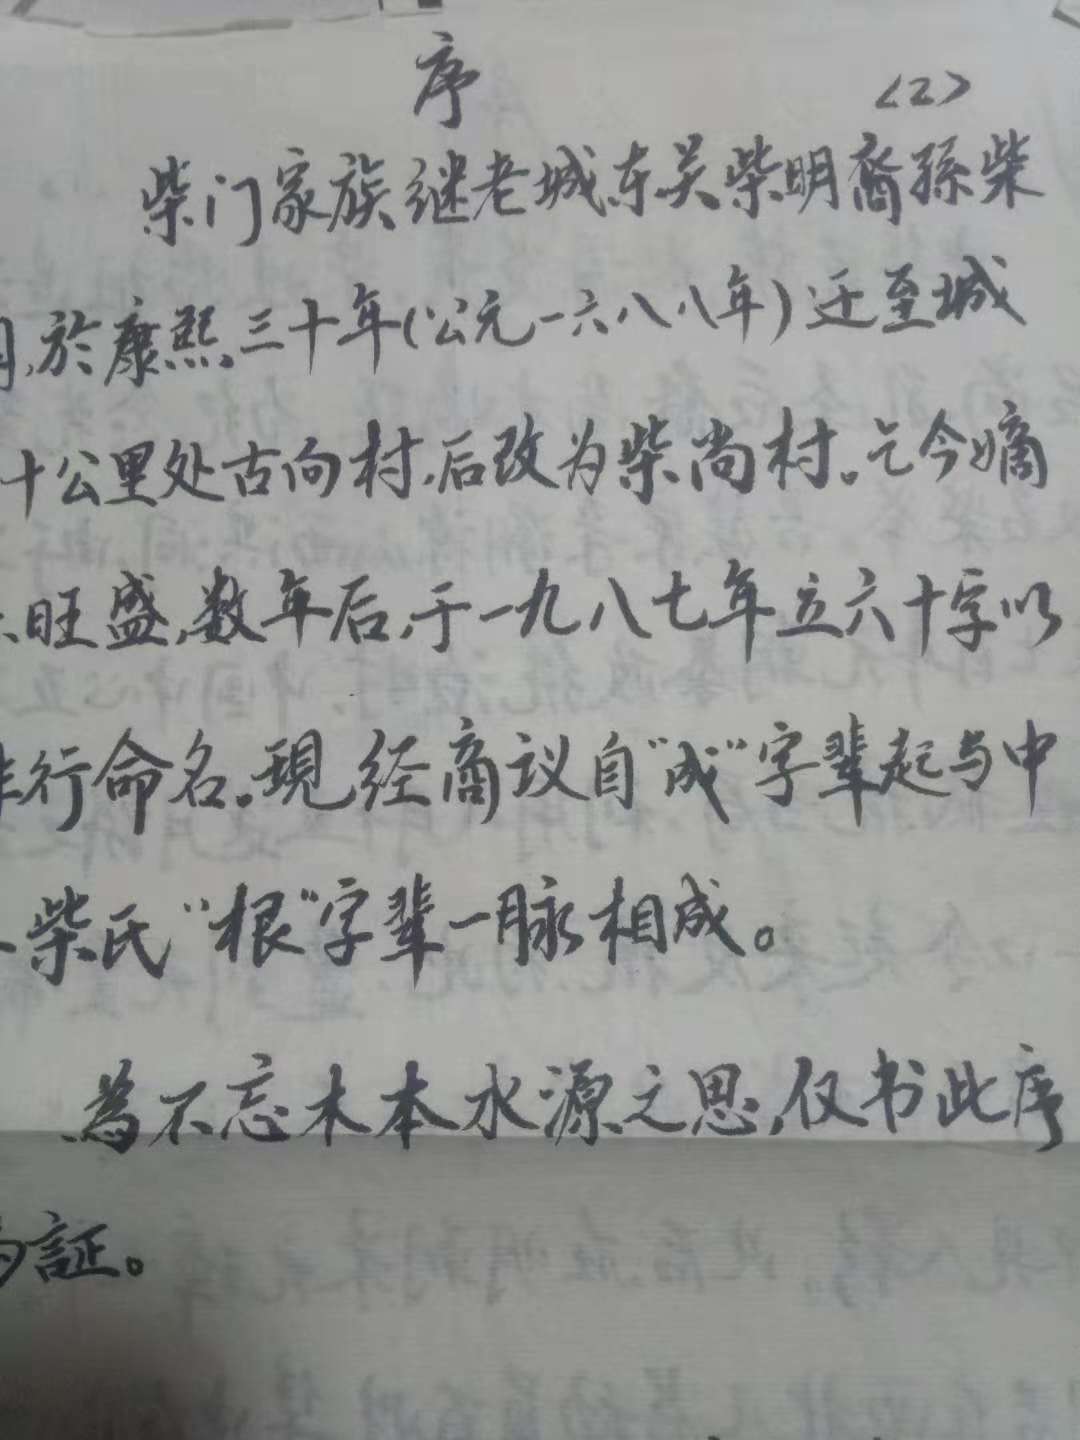 序
<2>
柴门家族继老城东关柴明裔孫柴
於康熙三十年(公元一六八八年)迁至城
十公里处古向村,后改为柴尚村。乞今嫡
旺盛,数年后,于一九八七年立六十字以
行命名。現经商议自"成"字辈起与中
柴氏"根"字辈一脉相成。
為不忘木本水源之思,仅书此序
証。